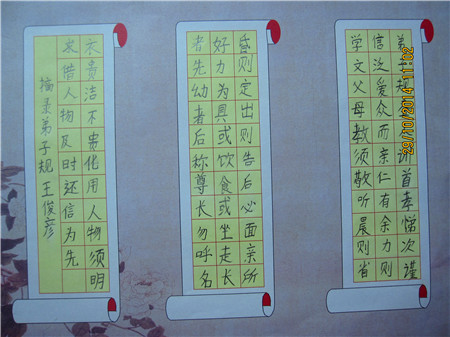 弟子规训首孝悌次谨
信泛爱众而亲仁有余力则
学文父母教须敬听晨则省
昏则定出则告后必面亲所
好力为具或饮食或坐走长
者先幼者后称尊长勿呼名
衣贵洁不贵化用人物须明
借人物及时还信为先
摘录弟子规王俊彦
29/10/2014 11:02